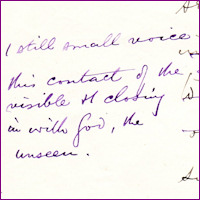 I still small voice
this contact of the
visible & closing
in with God, the
unseen.